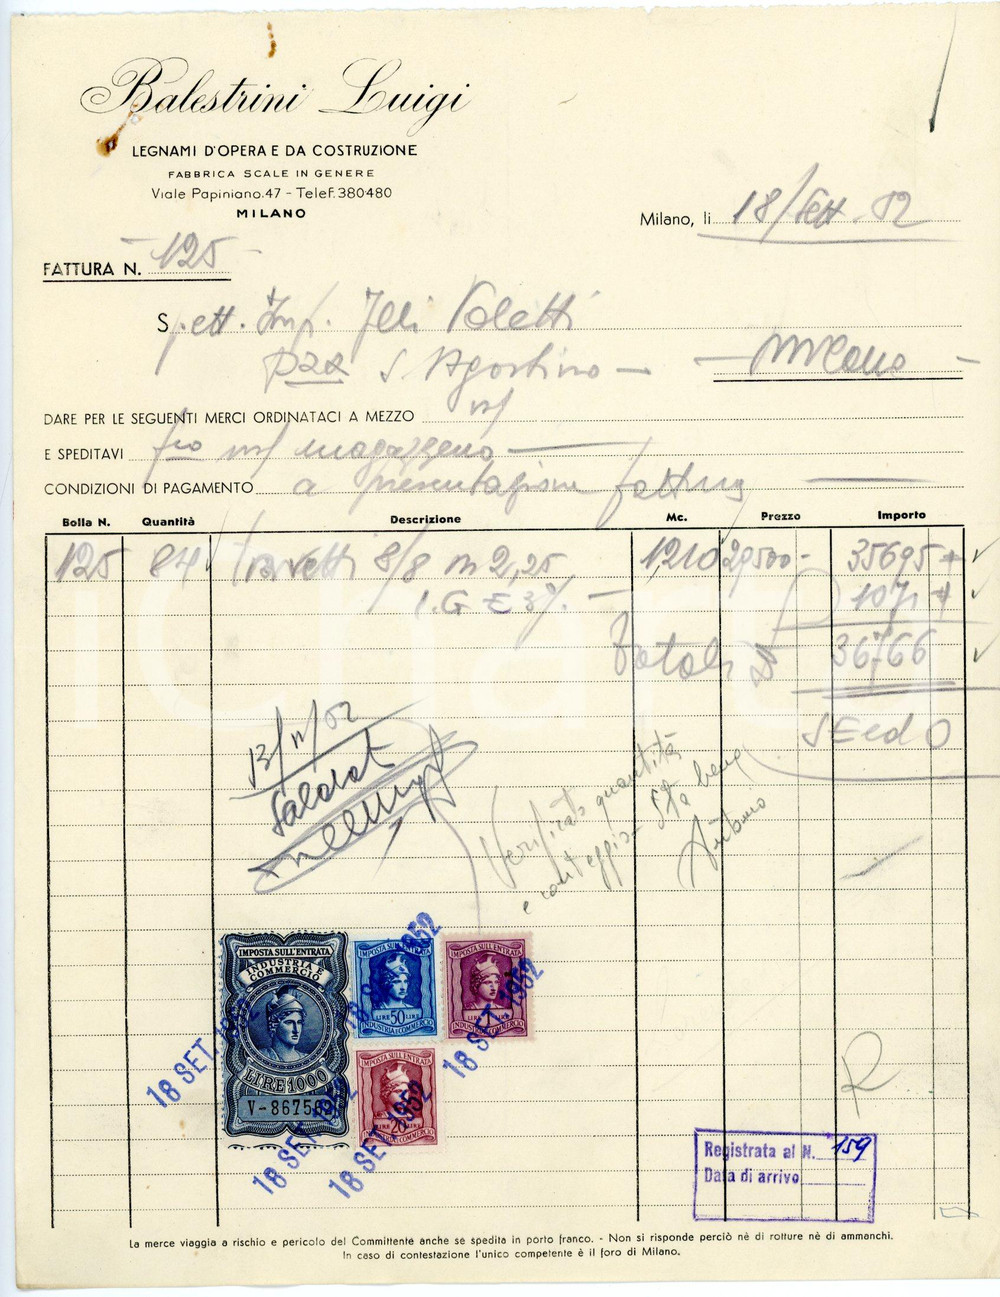 Balestrini Luigi
LEGNAMI D'OPERA E DA COSTRUZIONE
FABBRICA SCALE IN GENERE
Viale Papiniano.47 - Telef.380480
MILANO
Milano, li 18/Sett. 52
FATTURA N. 125
Spett. Imp. F.lli Poletti
P.zza S. Agostino - Milano -
DARE PER LE SEGUENTI MERCI ORDINATACI A MEZZO
E SPEDITAVI fco magazzeno
CONDIZIONI DI PAGAMENTO a presentazione fattura
Bolla N. Quantità Descrizione Mc. Prezzo Importo
125 84 Travetti 8/8 m 2,25 1,210 29500- 35695
I.G.E 3% - 1071
Totale 36766
SALDO
13/11/52
Saldato
Verificato quantità
e conteggio Sta bene
IMPOSTA SULL'ENTRATA
INDUSTRIA E COMMERCIO
LIRE 1000
IMPOSTA SULL'ENTRATA
LIRE 50 LIRE
INDUSTRIA E COMMERCIO
IMPOSTA SULL'ENTRATA
INDUSTRIA E COMMERCIO
IMPOSTA SULL'ENTRATA
20
INDUSTRIA E COMMERCIO
18 SET. 1952
18 SET. 1952
18 SET. 1952
18 SET. 1952
18 SET. 1952
R
Registrata al N. 159
Data di arrivo
La merce viaggia a rischio e pericolo del Committente anche se spedita in porto franco. - Non si risponde perciò nè di rotture nè di ammanchi.
In caso di contestazione l'unico competente è il foro di Milano.